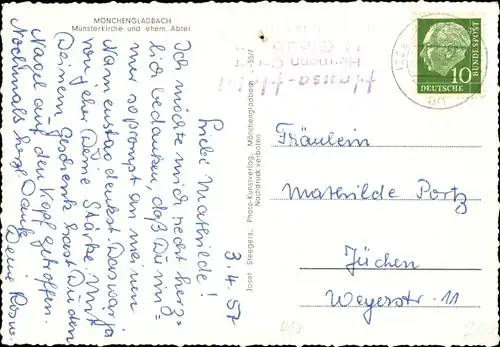 MÖNCHENGLADBACH
Münsterkirche und ehem. Abtei
3.4.57
Liebe Mathilde!
Ich möchte mich recht herz-
lich bedanken, daß Du im-
mer so prompt an meinen
Namenstag denkst. Das war ja
von eher Deine Stärke. Mit
Deinem Gedenk hast Du den
Nagel auf den Kopf getroffen.
Nochmals herzl. Dank
Deine
Josef Steegers, Photo-Kunstverlag, Mönchengladbach
Nachdruck verboten
Hansa-Hotel
Hermann
10
DEUTSCHE
BUNDESPOST
Fräulein
Mathilde Portz
Jüchen
Weyerstr. 11